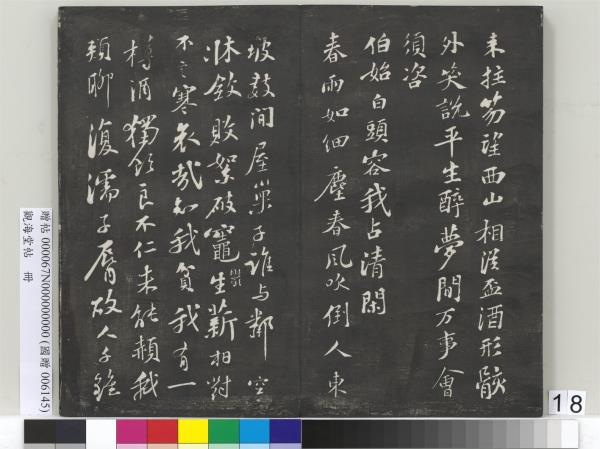 来拄笏望西山相從盃酒形骸
外笑說平生醉夢間万事會
須咨
伯始白頭容我占清閑
春雨如細塵春風吹倒人東
坡數間屋巢子誰与鄰空
牀斂敗絮破竈鬱生薪相對
不言寒哀哉知我貧我有一
樽酒獨飲良不仁未能頳我
頰聊復濡子脣故人千
贈帖 000067N000000000 (國贈 006145)
觀海堂帖 冊
18